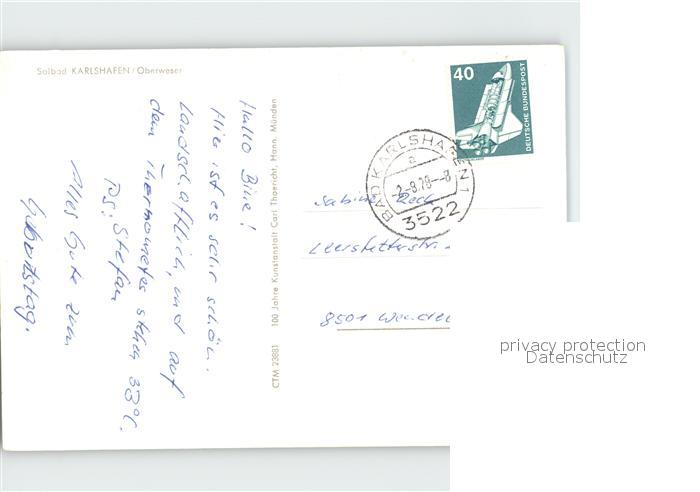 Solbad KARLSHAFEN / Oberweser
Hallo Bine!
Hier ist es sehr schön.
Landschaftlich, und auf
dem Thermometer stehen 33°C.
Ps: Stefan
Alles Gute zum
Geburtstag.
CTM 23881 100 Jahre Kunstanstalt Carl Thoericht, Hann. Münden
40
DEUTSCHE BUNDESPOST
BAD KARLSHAFEN 1
a
-2.-8.78.-8
3522
Sabine
8501
privacy protection
Datenschutz